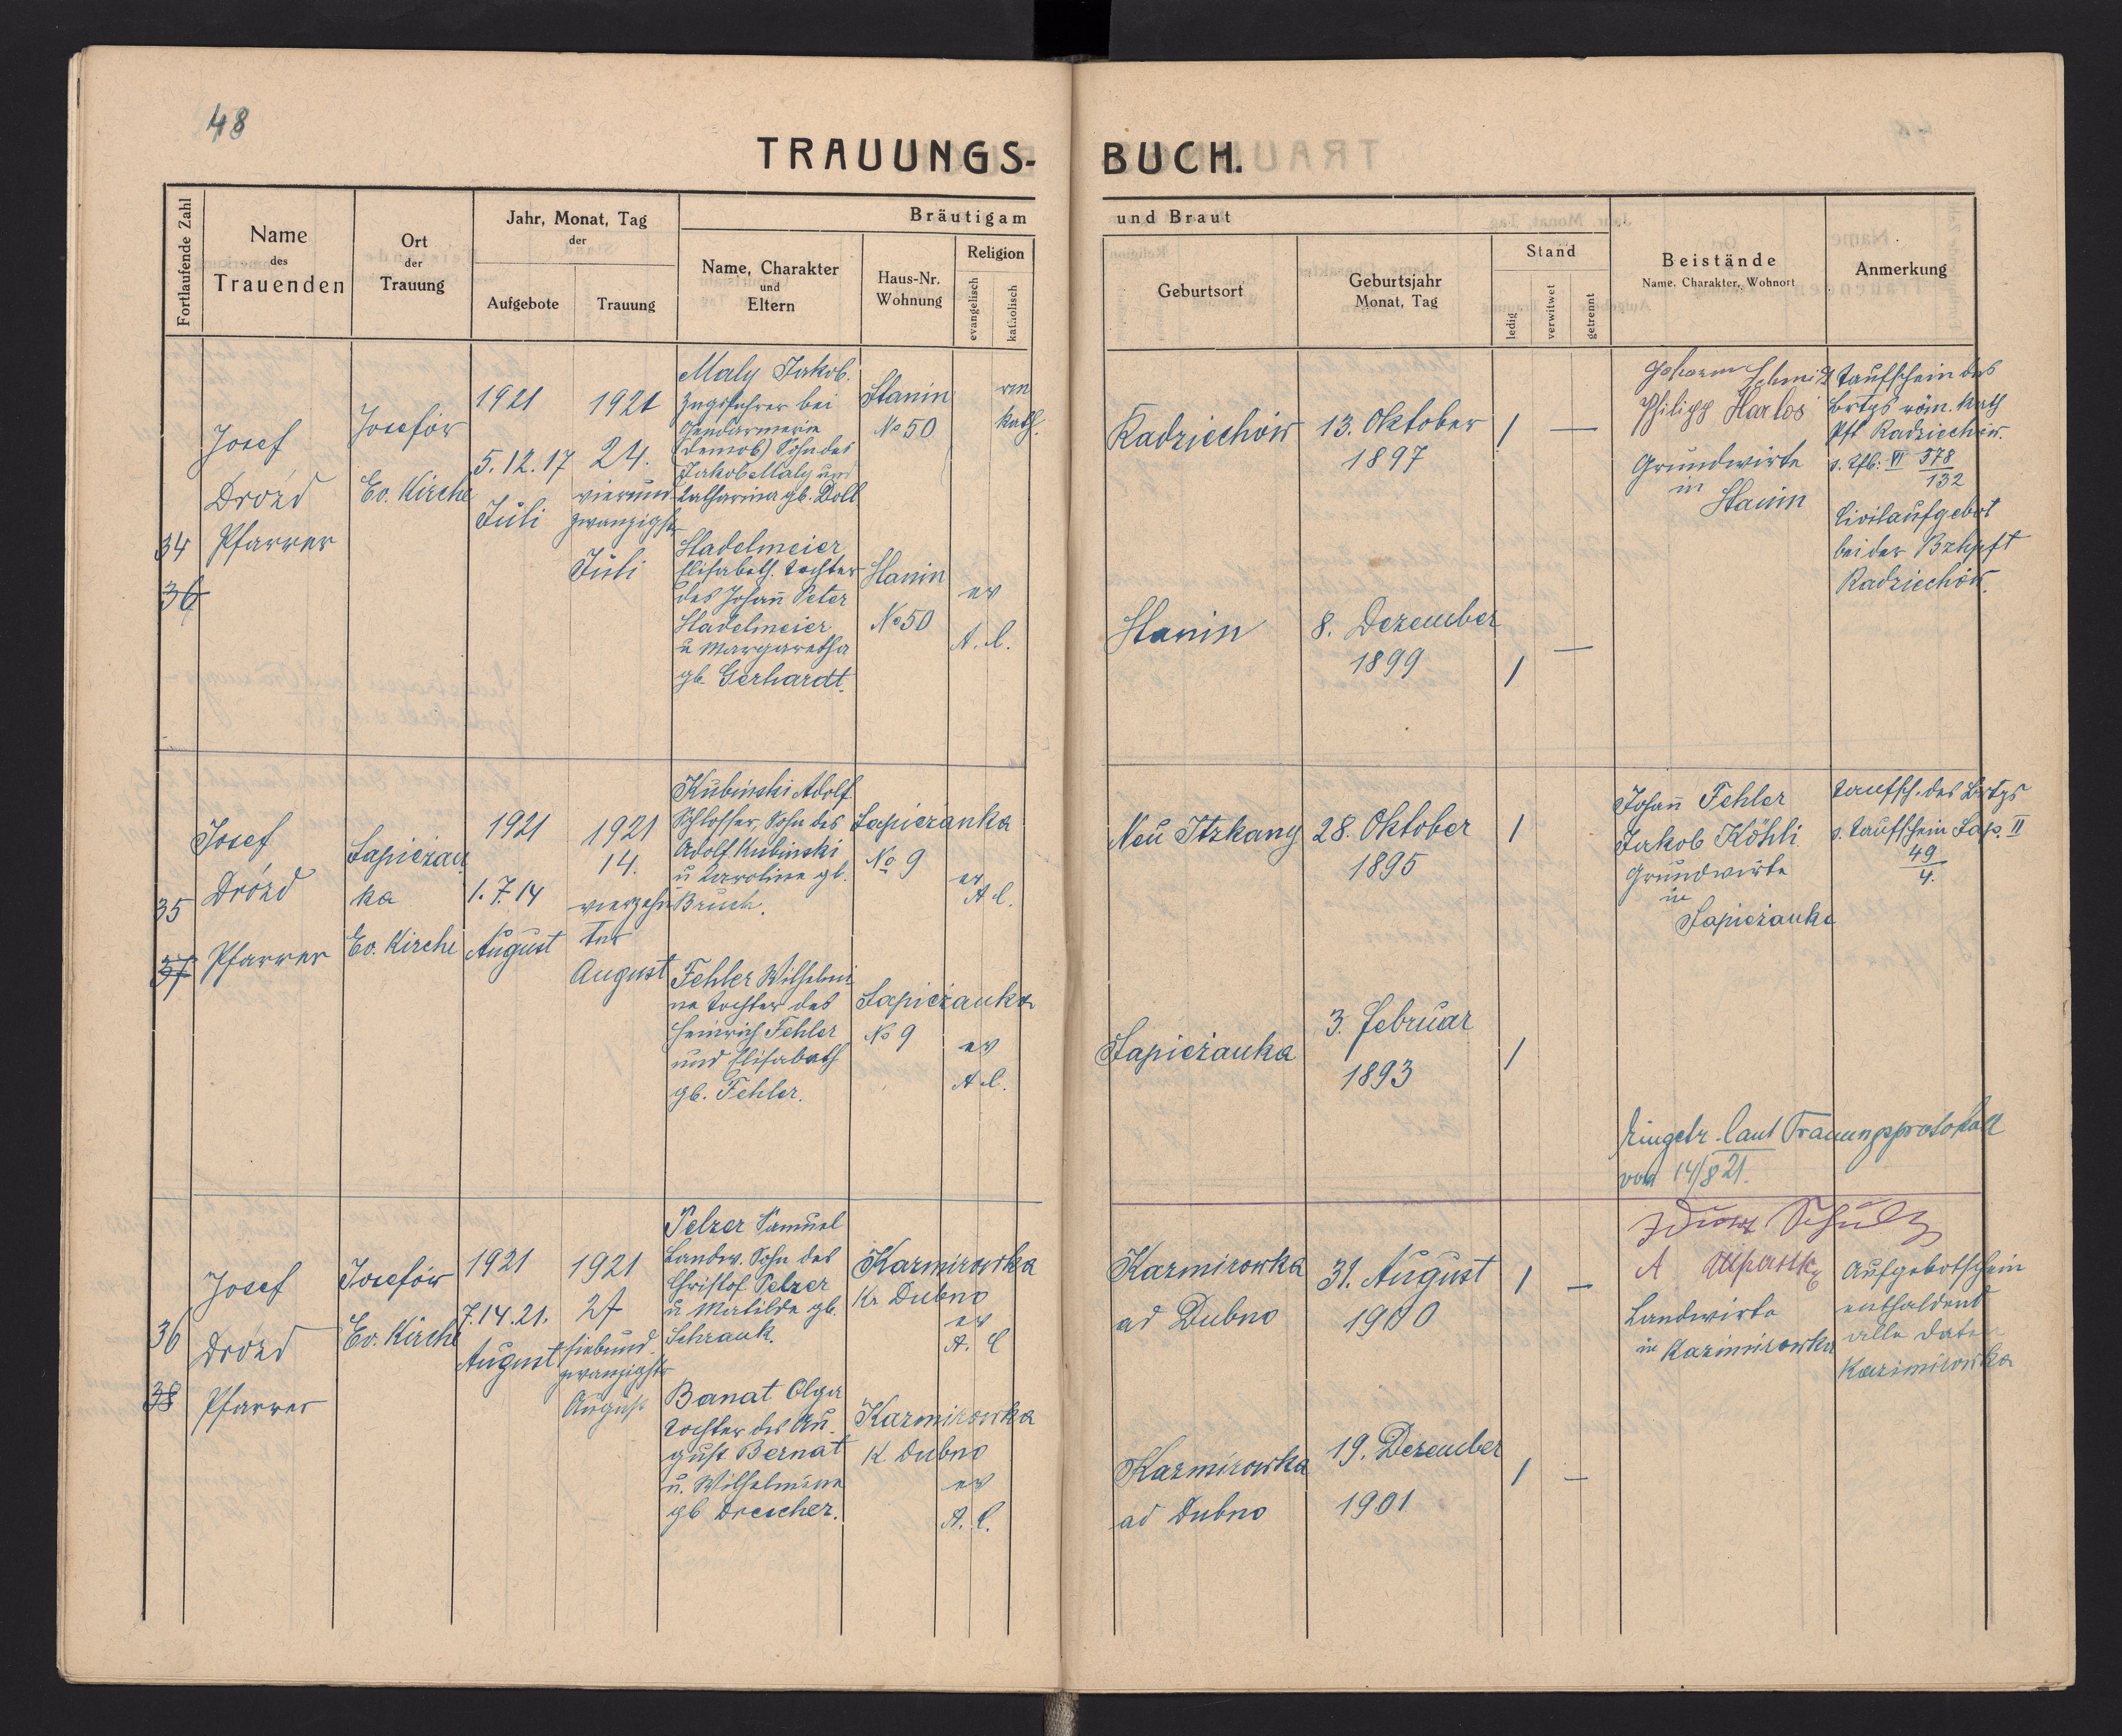 48
TRAUUNGS-BUCH.
Fortlaufende Zahl
Name
des
Trauenden
Ort
der
Trauung
Jahr, Monat, Tag
der
Aufgebote
Trauung
Bräutigam
und Braut
Name, Charakter
und
Eltern
Haus-Nr.
Wohnung
Religion
evangelisch
katholisch
Geburtsort
Geburtsjahr
Monat, Tag
Stand
ledig
verwitwet
getrennt
Beistände
Name, Charakter, Wohnort
Anmerkung
34
36
Josef
Drozd
Pfarrer
Josefów
Ev. Kirche
1921
5.12.17
Juli
1921
24.
vierund
zwanzigste
Juli
Maly Jakob.
Zugsführer bei
Gendarmerie
(demob) Sohn des
Jakob Maly und
Katharina gb. Doll.
Stanin
No 50
röm
kath.
Radziechów
13. Oktober
1897
/
—
Johann Schmidt
Philipp Harlos
Grundwirte
in
Stanin
Taufschein des
Brtgs röm. kath
Pft Radziechów.
s. Tfb: VI 578
132
Civilaufgebot
bei der Bzhpft
Radziechów.
Stadelmeier
Elisabeth. Tochter
des Johañ Peter
Stadelmeier
u Margaretha
gb. Gerhardt.
Stanin
No 50
ev
A. C.
Stanin
8. Dezember
1899
/
—
35
37
Josef
Drózd
Pfarrer
Sapiezan
ka
Ev. Kirche
1921
1. 7. 14
August
1921
14.
vierzehn
ter
August
Kubinski Adolf
Schlosser, Sohn des
Adolf Kubinski
u Karoline gb.
Bruch.
Sapiezanka
No 9
ev
A C.
Neu Itzkany
28. Oktober
1895
/
Johañ Fehler
Jakob Köhli
Grundwirte
in
Sapieżanka
Taufsch. des Brtgs
s. Taufschein Sap. II
49
4.
Fehler Wilhelmi
ne Tochter des
Heinrich Fehler
und Elisabeth
gb. Fehler.
Sapieżanka
No 9
ev
A C.
Sapieżanka
3. Februar
1893
/
Eingetr. laut Trauungsprotokoll
vom 14/8 21.
36
38
Josef
Drózd
Pfarrer
Josefów
Ev. Kirche
1921
7. 14. 21.
August
1921
27
siebund
zwanzigste
August
Pelzer Samuel
Landw. Sohn des
Christof Pelzer
u Matilde gb.
Schrank.
Kazmirowka
Kr Dubno
ev
A. C
Kazmirowka
ad Dubno
31. August
1900
/
—
Schulz
A
Landwirte
in Kazimirowka
Aufgebotschein
enthaltend
alle Daten
Kazimirowka
Banat Olga
Tochter des Au
gust Bernat
u. Wilhelmine
gb Drescher.
Kazmirowka
K Dubno
ev
A. C.
Kazmirowka
ad Dubno
19. Dezember
1901
/
—